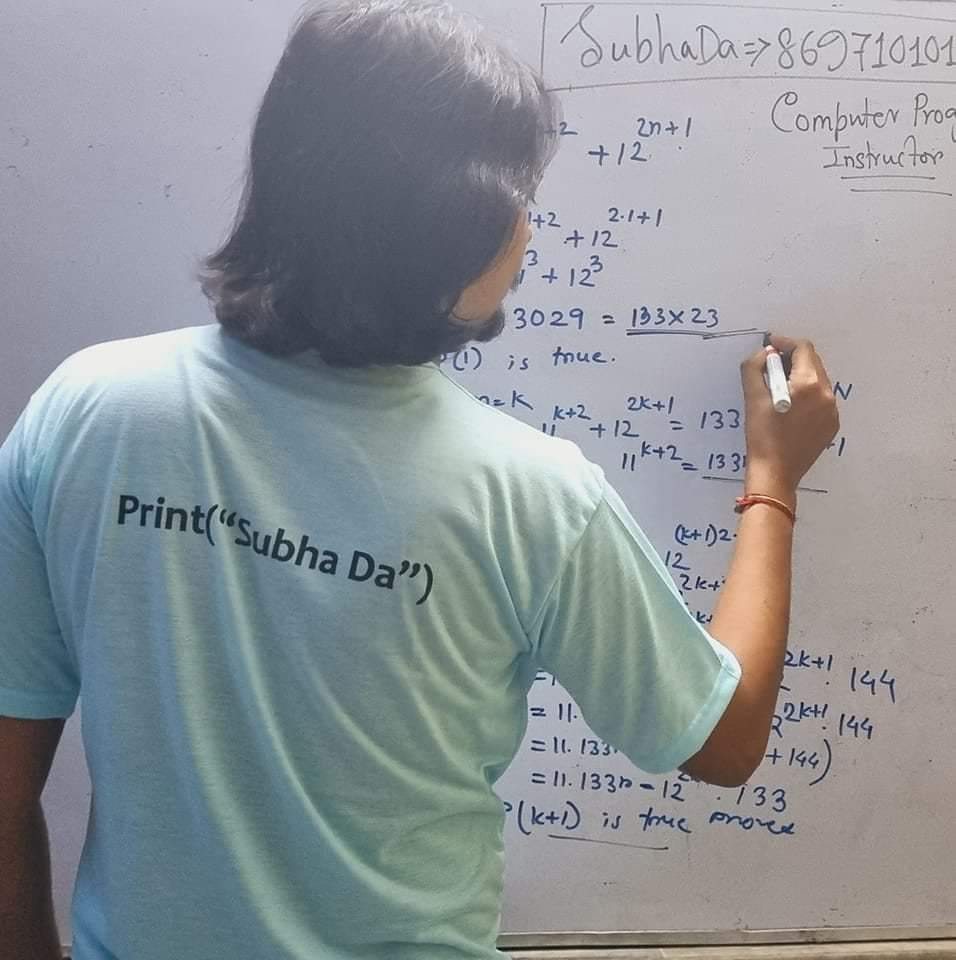 SubhaDa=>869710101
Computer Prog
Instructor
+2 + 12^2n+1
1+2 + 12^2·1+1
^3 + 12^3
3029 = 133×23
(1) is true.
n=K
11^k+2 + 12^2k+1 = 133 N
11^k+2 = 133 +1
(k+1)2·
12
2k+
k+
= 2k+1 · 144
= 11. 2^2k+1 · 144
= 11. 133 + 144)
= 11. 133n - 12 . 133
P(k+1) is true proved
Print(“Subha Da”)